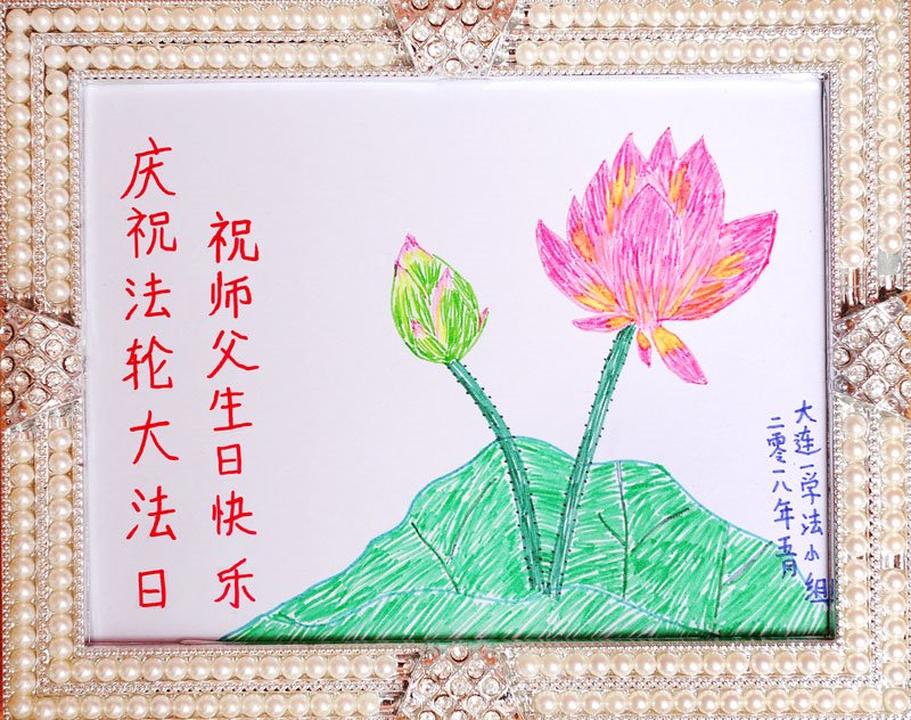 庆祝法轮大法日
祝师父生日快乐
大连一学法小组
二零一八年五月